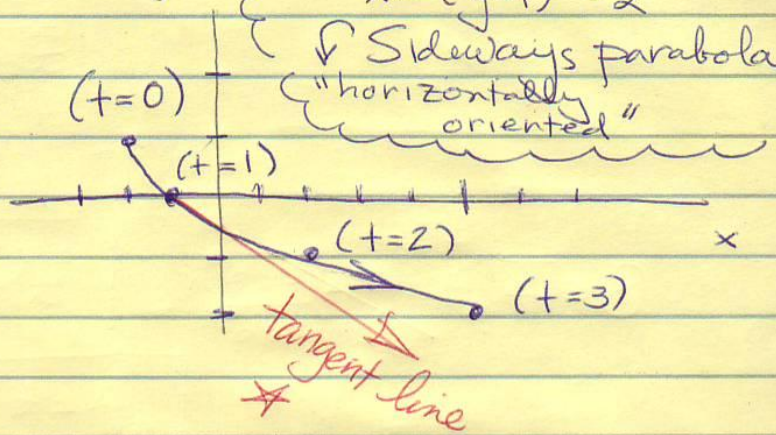 Sideways parabola
(t=0)
"horizontally
oriented"
(t=1)
(t=2)
x
(t=3)
tangent line